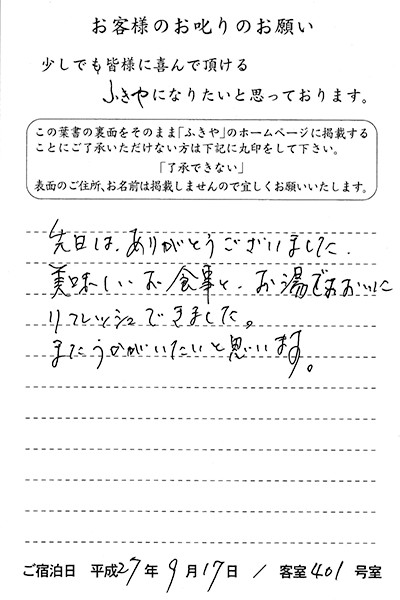 お客様のお叱りのお願い
少しでも皆様に喜んで頂ける
ふきやになりたいと思っております。
この葉書の裏面をそのまま「ふきや」のホームページに掲載する
ことにご了承いただけない方は下記に丸印をして下さい。
「了承できない」
表面のご住所、お名前は掲載しませんので宜しくお願いいたします。
先日は、ありがとうございました.
美味しいお食事と、お湯でおおいに
リフレッシュできました。
またうかがいたいと思います。
ご宿泊日 平成27年9月17日 / 客室401号室